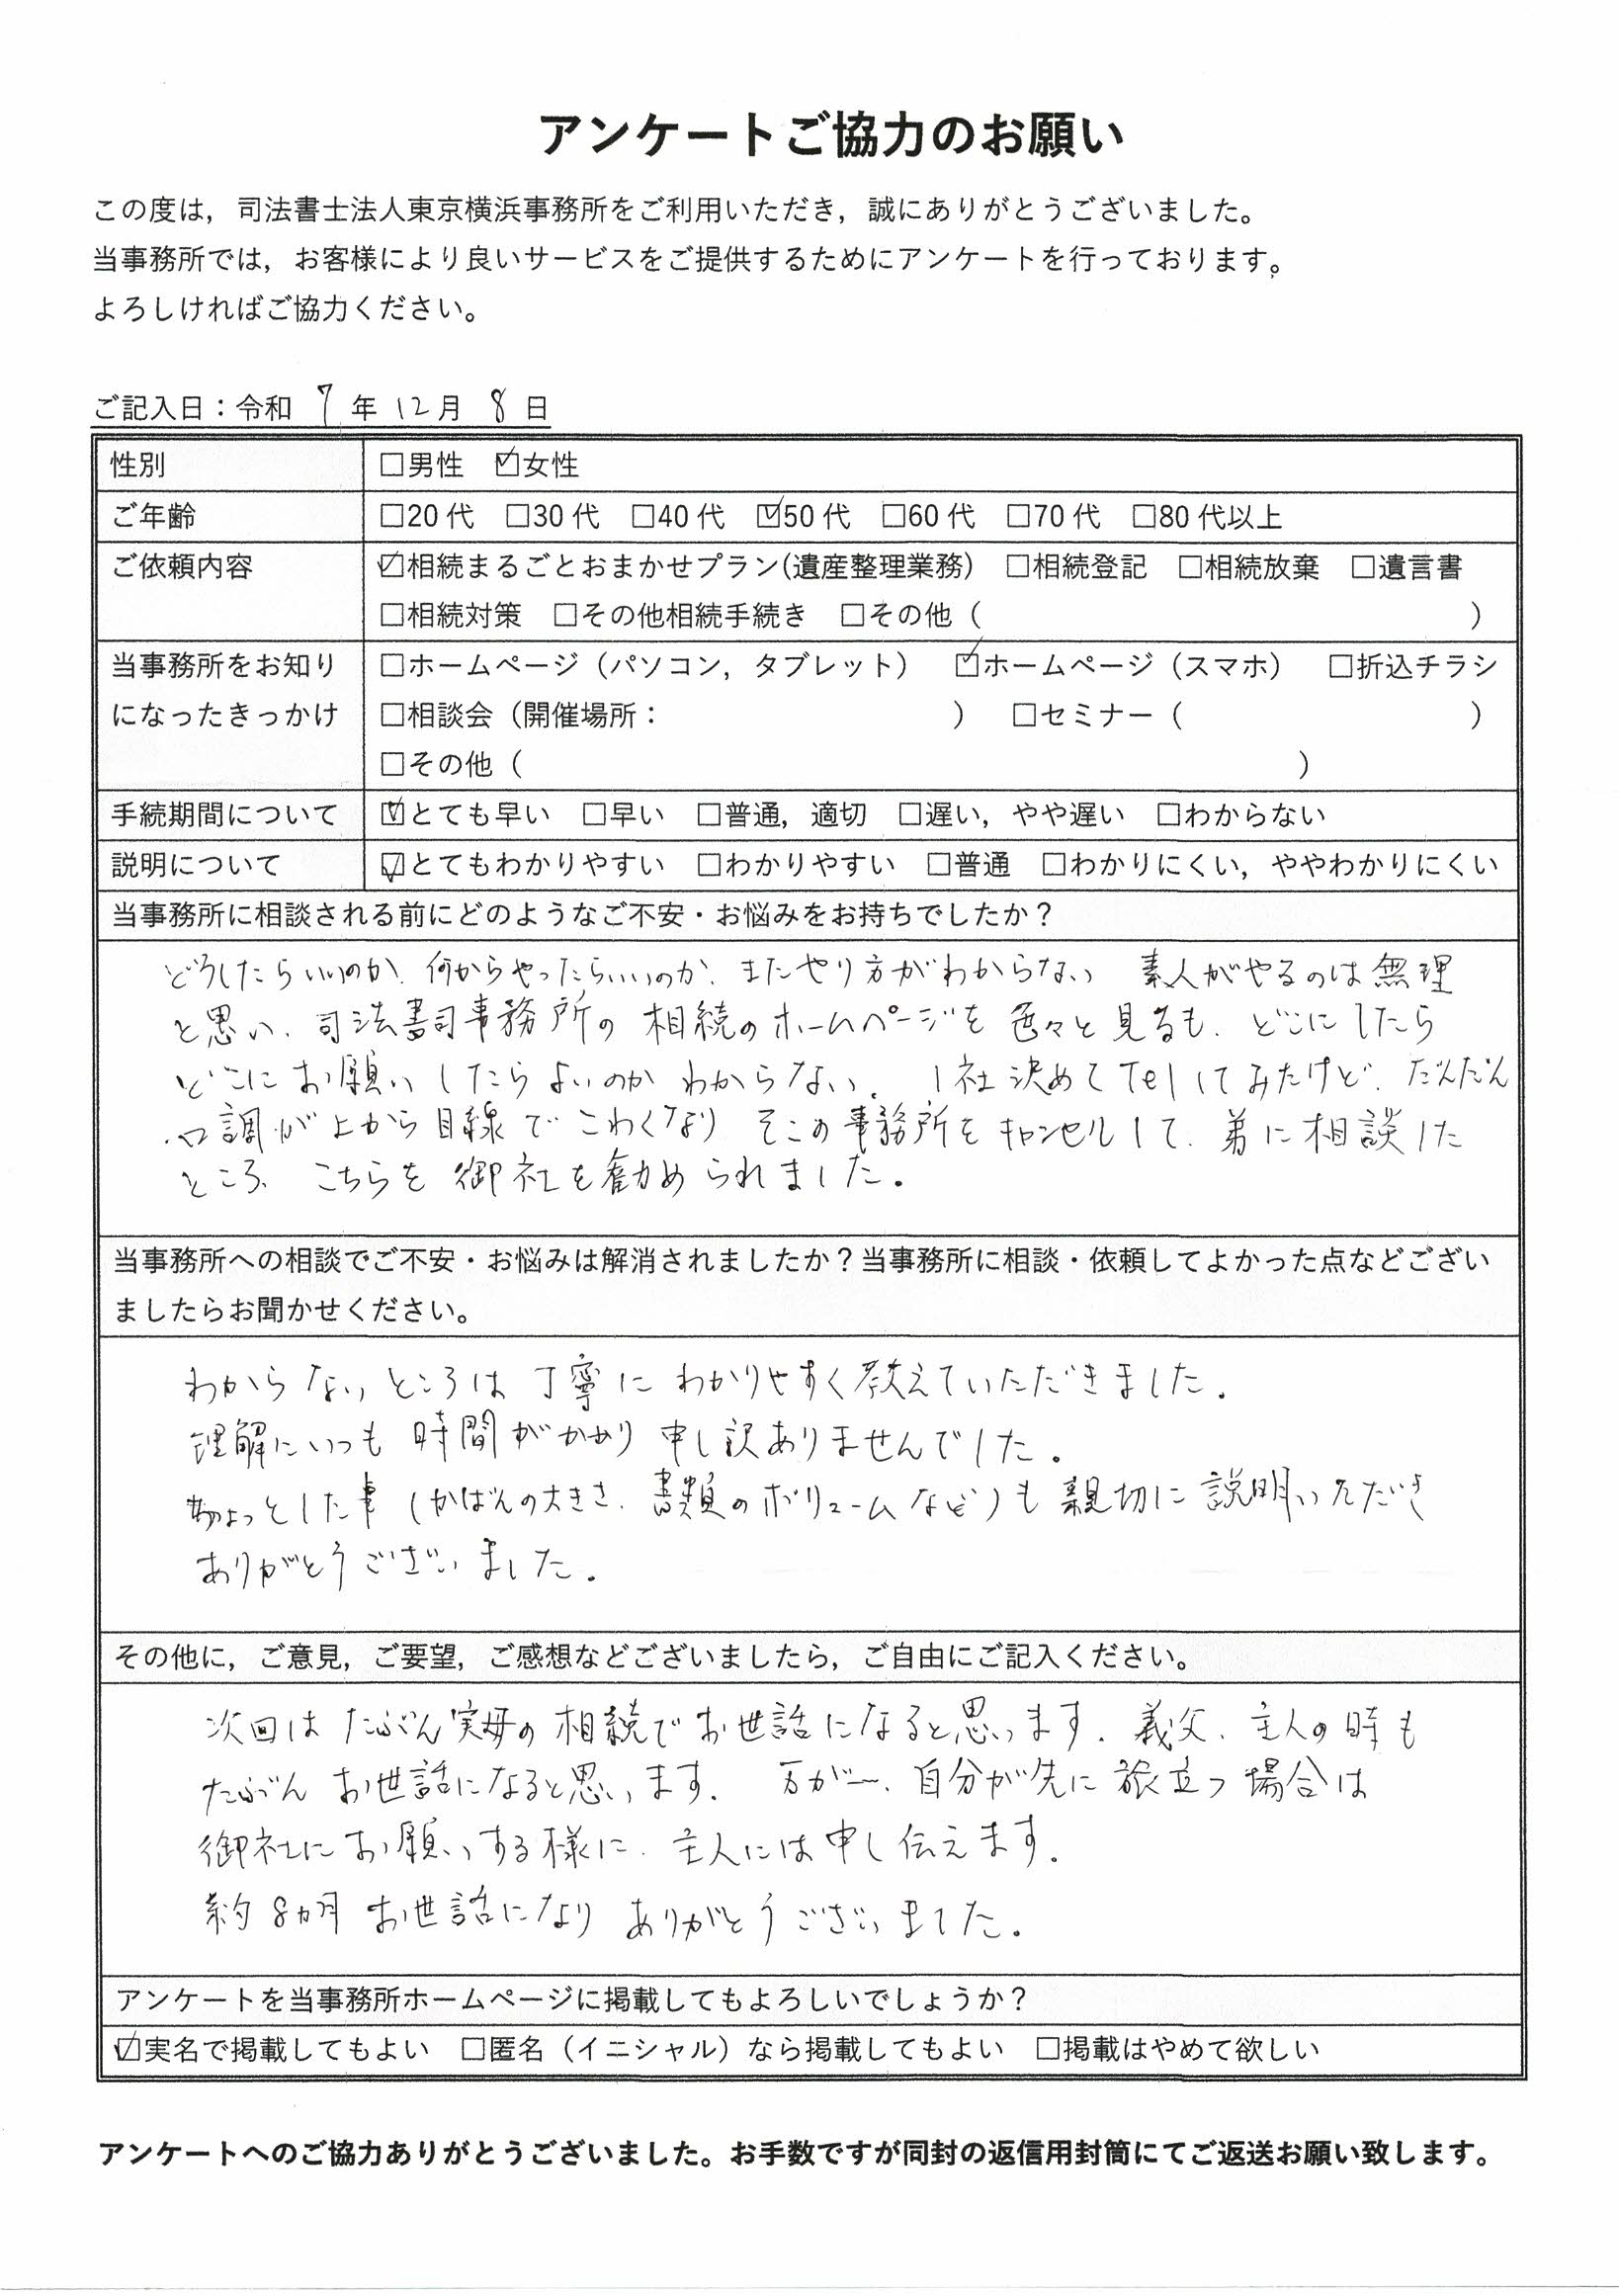 アンケートご協力のお願い
この度は，司法書士法人東京横浜事務所をご利用いただき，誠にありがとうございました。
当事務所では，お客様により良いサービスをご提供するためにアンケートを行っております。
よろしければご協力ください。
ご記入日：令和 7 年 12 月 8 日
性別 □男性 ☑女性
ご年齢 □20代 □30代 □40代 ☑50代 □60代 □70代 □80代以上
ご依頼内容 ☑相続まるごとおまかせプラン(遺産整理業務) □相続登記 □相続放棄 □遺言書
□相続対策 □その他相続手続き □その他（ ）
当事務所をお知り □ホームページ（パソコン，タブレット） ☑ホームページ（スマホ） □折込チラシ
になったきっかけ □相談会（開催場所： ） □セミナー（ ）
□その他（ ）
手続期間について ☑とても早い □早い □普通，適切 □遅い，やや遅い □わからない
説明について ☑とてもわかりやすい □わかりやすい □普通 □わかりにくい，ややわかりにくい
当事務所に相談される前にどのようなご不安・お悩みをお持ちでしたか？
どうしたらいいのか、何からやったらいいのか、またやり方がわからない 素人がやるのは無理
と思い、司法書司事務所の相続のホームページを色々と見るも、どこにしたら
どこにお願いしたらよいのかわからない。1社決めてTelしてみたけど、だんだん
口調が上から目線でこわくなり そこの事務所をキャンセルして、弟に相談した
ところ、こちらを御社を勧められました。
当事務所への相談でご不安・お悩みは解消されましたか？当事務所に相談・依頼してよかった点などござい
ましたらお聞かせください。
わからないところは丁寧にわかりやすく教えていただきました。
理解にいつも時間がかかり申し訳ありませんでした。
ちょっとした事（かばんの大きさ、書類のボリュームなど）も親切に説明いただき
ありがとうございました。
その他に，ご意見，ご要望，ご感想などございましたら，ご自由にご記入ください。
次回はたぶん実母の相続でお世話になると思います。義父、主人の時も
たぶんお世話になると思います。万が一、自分が先に旅立つ場合は
御社にお願いする様に、主人には申し伝えます。
約8カ月お世話になりありがとうございました。
アンケートを当事務所ホームページに掲載してもよろしいでしょうか？
☑実名で掲載してもよい □匿名（イニシャル）なら掲載してもよい □掲載はやめて欲しい
アンケートへのご協力ありがとうございました。お手数ですが同封の返信用封筒にてご返送お願い致します。